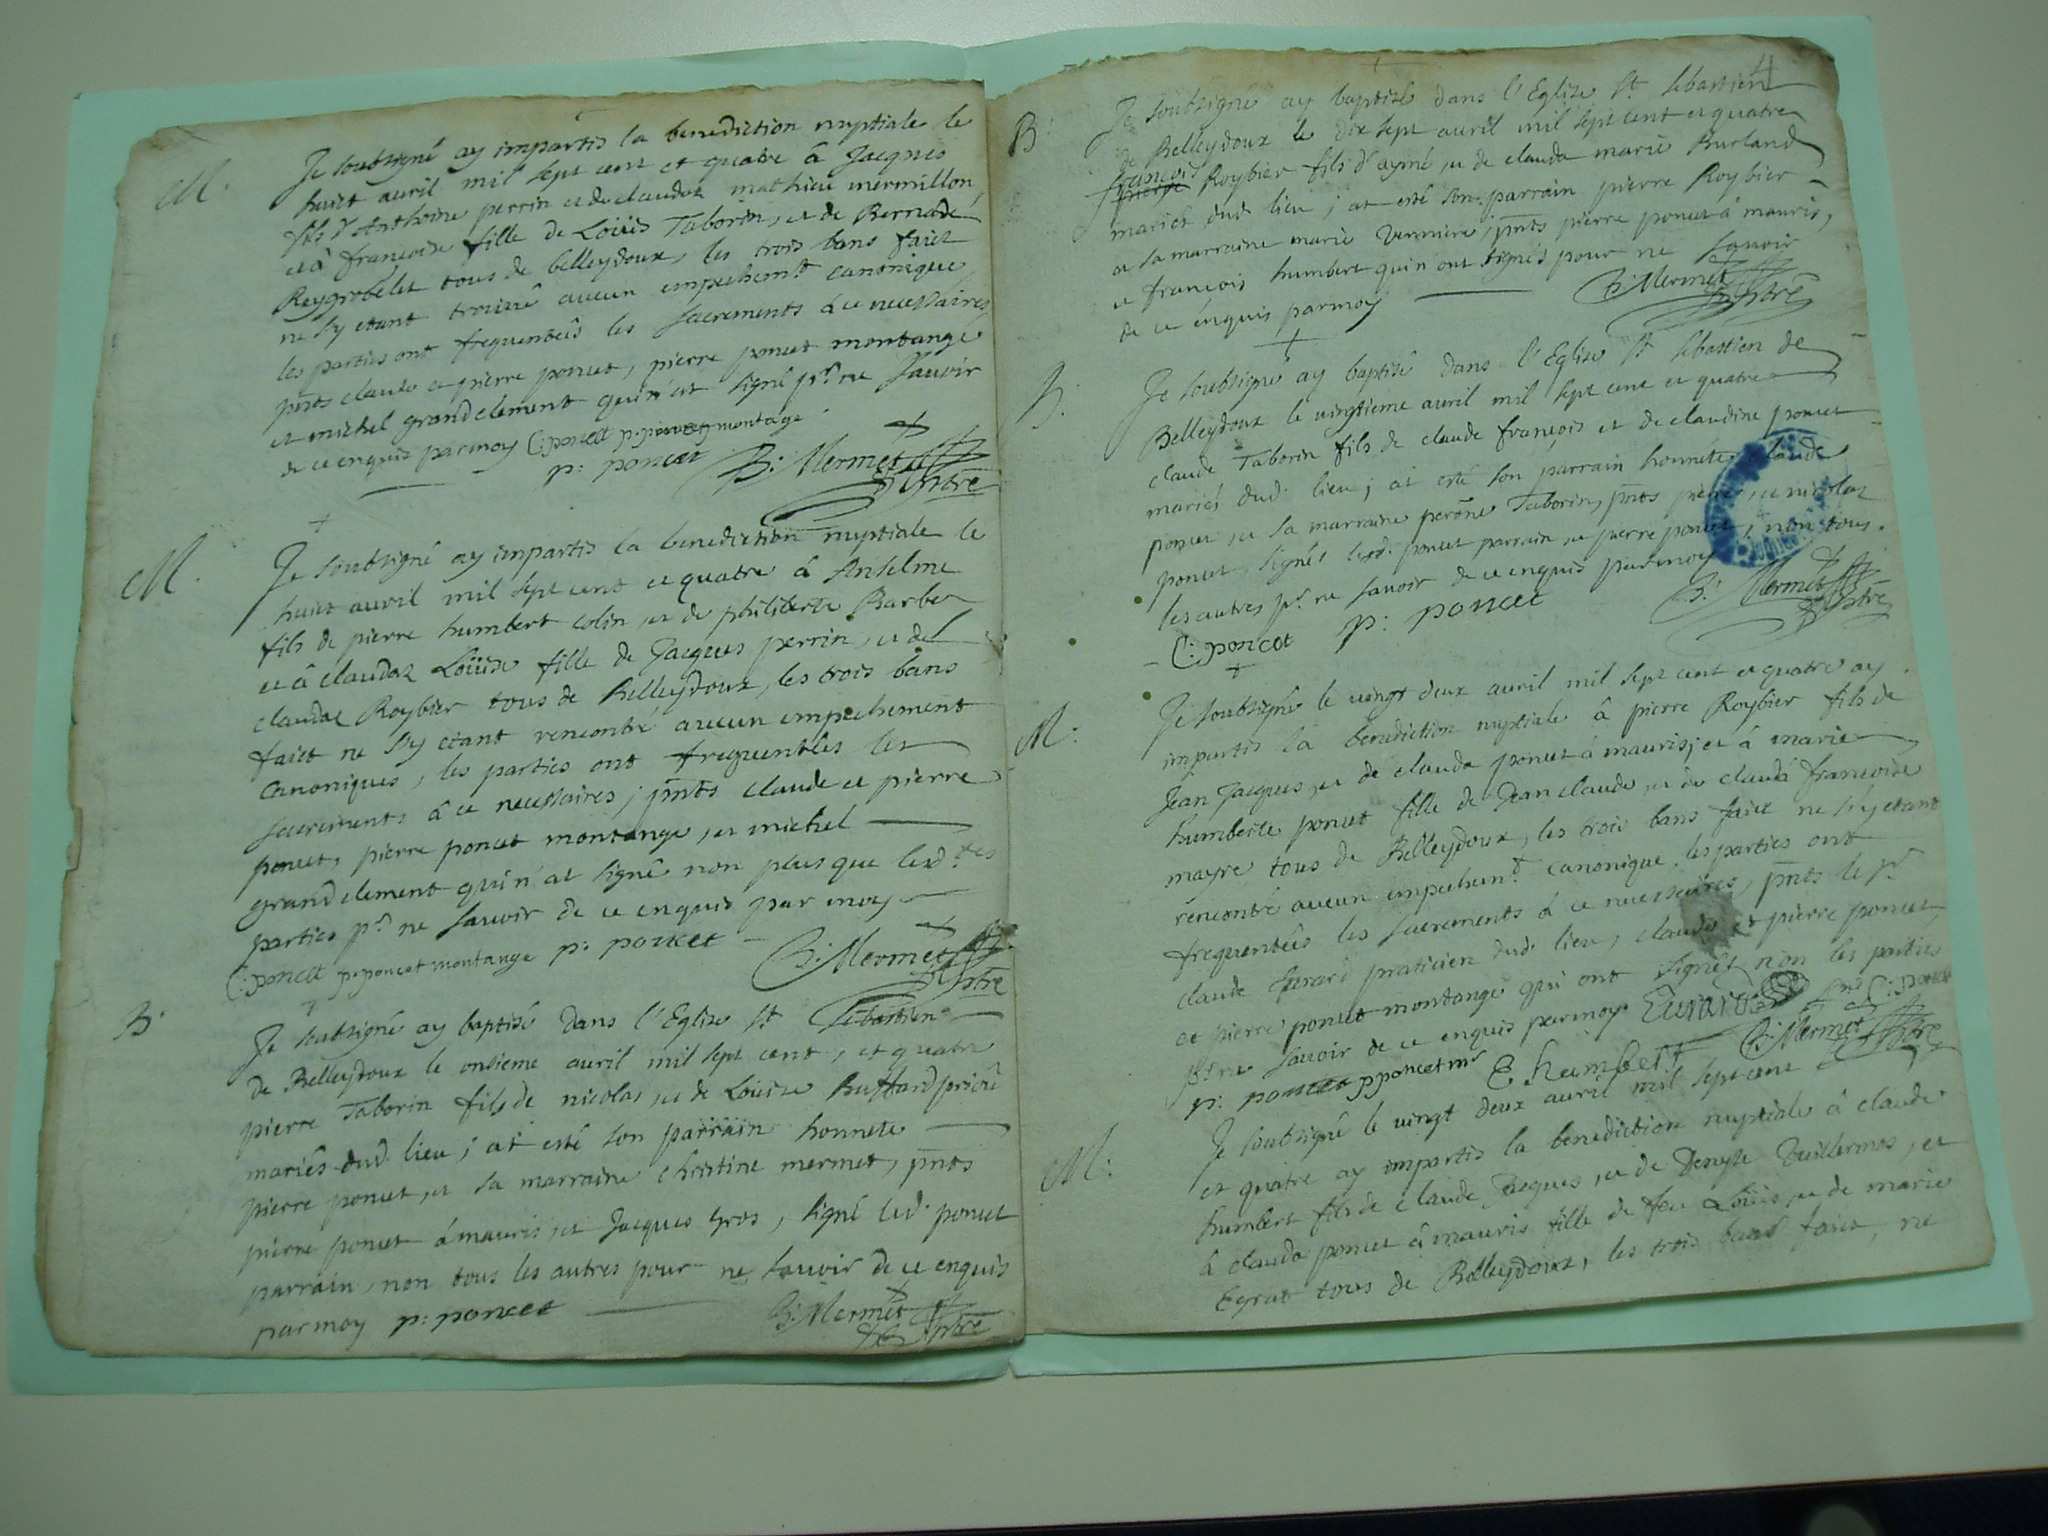 M.
Je soubsigné ay impartis la benediction nuptiale le
huict avril mil sept cent et quatre â Jacques
fils d'Anthoine perrin et de claudaz mathieu mermillon,
et â francoise fille de Loüis Taborin, et de Bernade
Reygrobelet tous de belleydoux, les trois bans faict
ne sy etant trouvé aucun empechemt canonique,
les parties ont frequentéès les sacrements â ce necessaires
pnts claude et pierre poncet, pierre poncet montange
et michel grandclement qui n'at signé pr ne sauoir
de ce enquis parmoy C: poncet p: poncet montagé
p: poncet B: Mermet ptre
M.
Je soubsigné ay impartis la benediction nuptiale le
huict auril mil sept cent et quatre â Anselme
fils de pierre humbert colin, et de philiberte Barbe
et â claudaz Loüise fille de Jacques perrin, et de
claudaz Roybier tous de Belleydoux, les trois bans
faict ne s'y etant rencontré aucun empechement
canoniques, les parties ont frequentéés les
sacrements â ce necessaires; pnts claude et pierre
poncet, pierre poncet montange, et michel
grandclement qui n'at signé non plus que lesd.tes
parties pr ne sauoir de ce enquis par moy
C: poncet p: poncet montange p: poncet B: Mermet ptre
B.
Je soubsigné ay baptisé dans l'Eglise St Sebastien
de Belleydoux le onsieme auril mil sept cent, et quatre
pierre Taborin fils de nicolas, et de Louise Buffard
mariés dud. lieu; at esté son parrain honnete
pierre poncet, et sa marraine christine mermet, pnts
pierre poncet â mauris, et Jacques gros, signé led. poncet
parrain, non tous les autres pour ne sauoir de ce enquis
parmoy p: poncet B: Mermet ptre
B.
Je soubsigné ay baptisé dans l'Eglise St Sebastien
de Belleydoux le dix sept auril mil sept cent et quatre
francois
Roybier fils d'aymé, et de clauda marie Burland
mariés dud. lieu; at esté son parrain pierre Roybier
et sa marraine marie verniere; pnts pierre poncet â mauris,
et francois humbert qui n'ont signés pour ne sauoir
de ce enquis parmoy B: Mermet ptre
B.
Je soubsigné ay baptisé dans l'Eglise St Sebastien de
Belleydoux le vingtieme auril mil sept cent et quatre
claude Taborin fils de claude francois et de claudine poncet
mariés dud. lieu; at esté son parrain honnéte claude
poncet, et sa marraine perõne Taborin, pnts pierre, et nicolas
poncet, signés lesd. poncet parrain, et pierre poncet, non tous
les autres pr ne sauoir de ce enquis parmoy
C: poncet p: poncet B: Mermet ptre
M:
Je soubsigné le vingt deux auril mil sept cent et quatre ay
impartis la benediction nuptiale â pierre Roybier fils de
Jean Jacques, et de clauda poncet â mauris; et â marie
humberte poncet fille de Jean claude, et de clauda francoise
mayre tous de Belleydoux, les trois bans faict ne s'y etant
rencontré aucun empechemt canonique. les parties ont
frequentéés les sacrements â ce necessaires, pnts le sr
claude praticien dud. lieu, claude et pierre poncet,
et pierre poncet montange qui ont signés non les parties
pr ne sauoir de ce enquis parmoy C: poncet
p: poncet p poncet mr C humbert B: Mermet ptre
M:
Je soubsigné le vingt deux auril mil sept cent
et quatre ay impartis la benediction nuptiale â claude
humbert fils de claude Jacques, et de Denyse Vuillermoz, et
â clauda poncet â mauris fille de feu Loüis, et de marie
Egrat tous de Belleydoux, les trois bans faict, ne